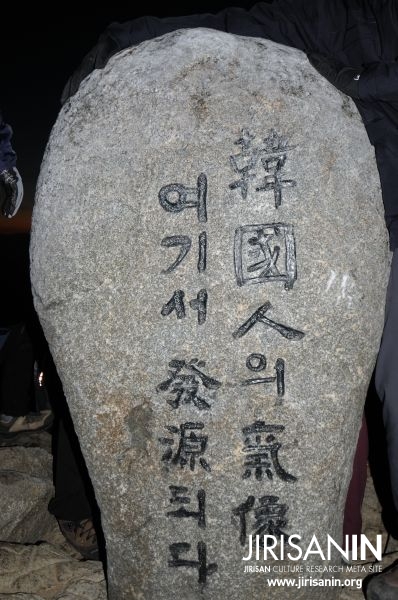 韓國人의 氣像
여기서 發源되다
JIRISANIN®
JIRISAN CULTURE RESEARCH META SITE
www.jirisanin.org